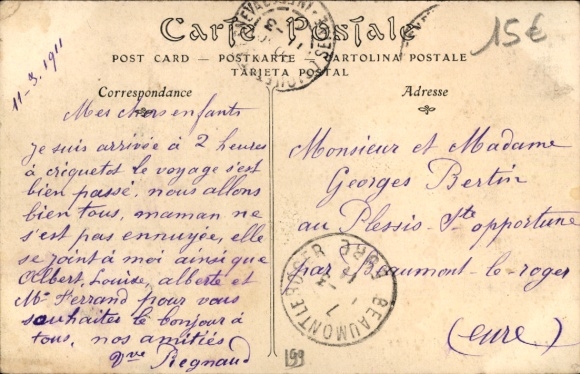 11-3.1911
Carte Postale
15€
POST CARD — POSTKARTE — CARTOLINA POSTALE
TARJETA POSTAL
Correspondance
Mes chers enfants
Je suis arrivée à 2 heures
à criquetot le voyage s'est
bien passé, nous allons
bien tous, maman ne
s'est pas ennuyée, elle
se joint à moi ainsi que
Albert, Louise, alberte et
Mr Ferrand pour vous
souhaiter le bonjour à
tous, nos amitiés
Vve Regnaud
Adresse
Monsieur et Madame
Georges Bertin
au Plessis Ste opportune
par Beaumont-le-roger
(eure)
BEAUMONT LE ROGER EURE